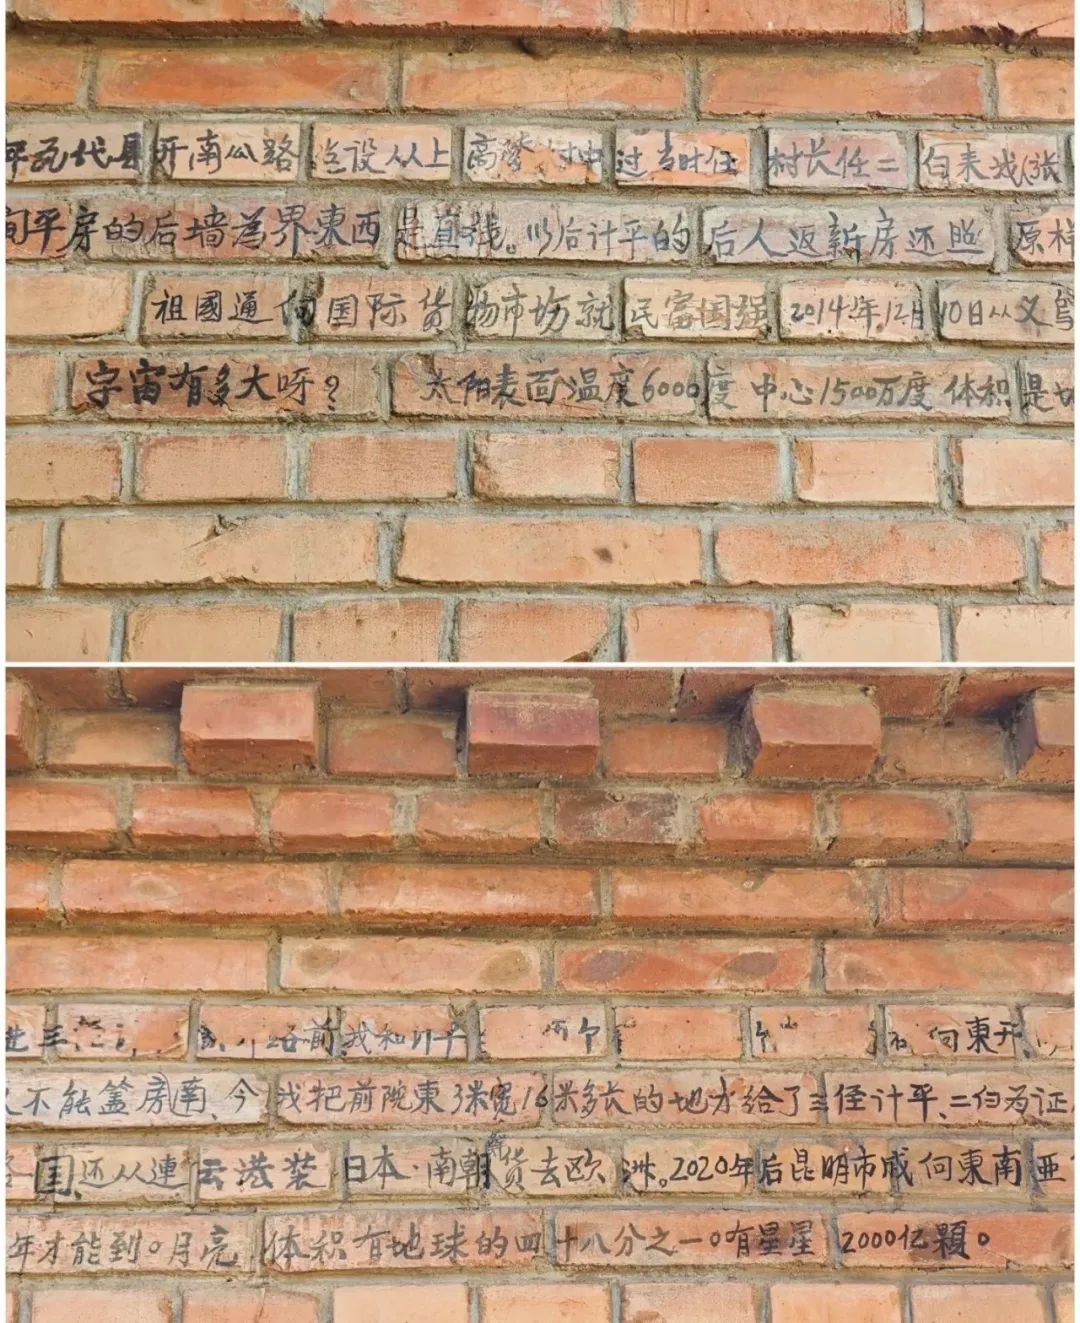 开南公路 设从上 过当时任 村长任二白来我张
间平房的后墙為界東西是直线。以后计平的后人返新房还照原样
祖國通向国际货物市场就民富国强2014年12月10日从义乌
宇宙有多大呀？ 太阳表面温度6000度中心1500万度体积是地
路前我和计平 向東开
不能盖房南、今我把前院東3米宽16米多长的地方给了三侄计平、二白为证
国还从連云港装日本·南朝鲜货去欧洲。2020年后昆明市成向東南亚
年才能到。月亮体积有地球的四十八分之一。有星星2000亿顆。